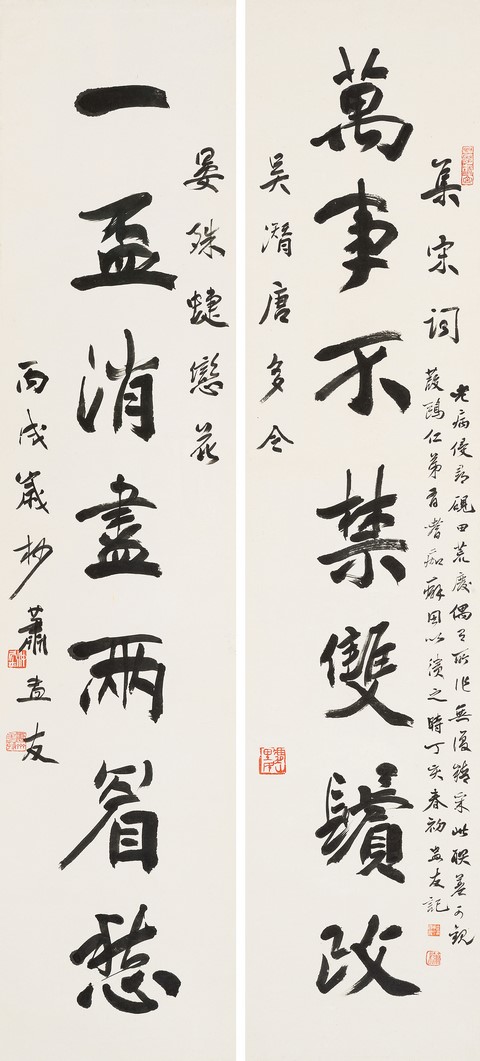 集宋詞
老病侵尋硯田荒廢偶有所作無復精采此聯差可觀
葭鷗仁弟有嗜痂癖用以之時丁亥春初盅友記
萬事不禁雙鬢改
吳潛唐多令
晏殊蝶戀花
一盃消盡兩眉愁
丙戌歲杪蕭盅友